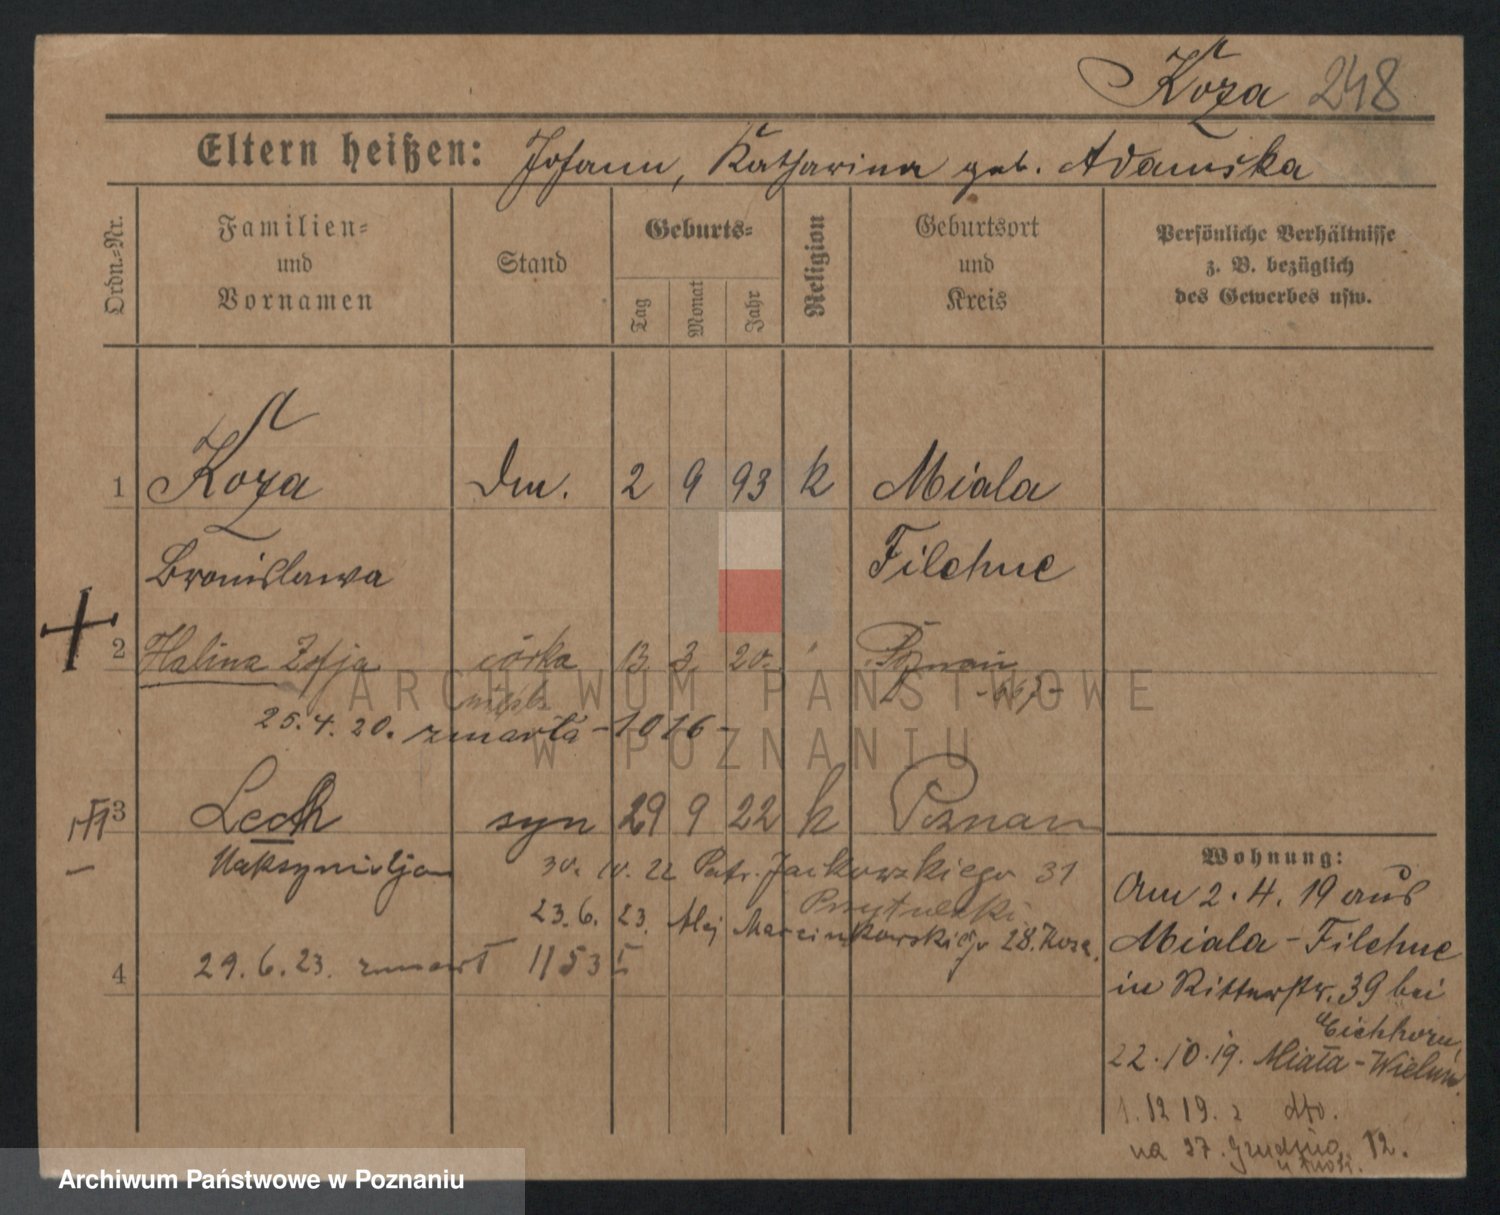 Koza 248
Eltern heißen: Johann, Katharina geb. Adamska
Ordn.-Nr.
Familien-
und
Vornamen
Stand
Geburts-
Tag
Monat
Jahr
Religion
Geburtsort
und
Kreis
Persönliche Verhältnisse
z. B. bezüglich
des Gewerbes usw.
1 Koza Dm. 2 9 93 k Miala
Bronislawa Filehne
2 Halina Zofja córka 13 3. 20. " Poznań
25.4.20. zmarła - 1016 -
3 Lech syn 29 9 22 k Poznan
Maksymiljan 30.10.22 Patr. Jackowskiego 31
23.6.23. Alej Marcinkowskiego 28. Koza.
4 29.6.23. zmarł 1153
Wohnung:
Am 2.4.19 aus
Miala - Filehne
in Ritterstr. 39 bei
Eichhorn,
22.10.19. Miała - Wieluń.
1.12 19. z dto.
na 27. Grudnia 12.
ARCHIWUM PAŃSTWOWE
W POZNANIU
Archiwum Państwowe w Poznaniu